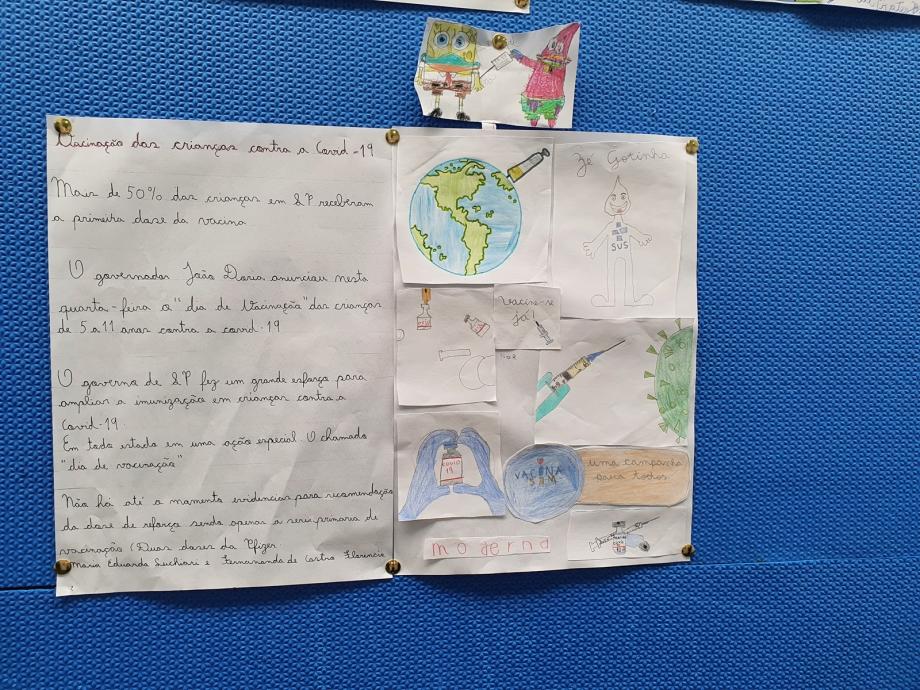 Vacinação das crianças contra a Covid-19
Mais de 50% das crianças em SP receberam
a primeira dose da vacina
O governador João Doria anunciou nesta
quarta-feira o "dia de Vacinação" das crianças
de 5 a 11 anos contra a covid-19
O governo de SP fez um grande esforço para
ampliar a imunização em crianças contra a
Covid-19.
Em todo estado em uma ação especial O chamado
"dia de vacinação"
Não há até o momento evidencias para recomendação
da dose de reforço sendo apenas a serie primaria de
vacinação (Duas doses da Pfizer
Maria Eduarda Luchiari e Fernananda de Castro Florencio
Zé Gotinha
SUS
Vacine-se
já!
COVID
19
VACINA
SIM
uma campanha
para todos
moderna